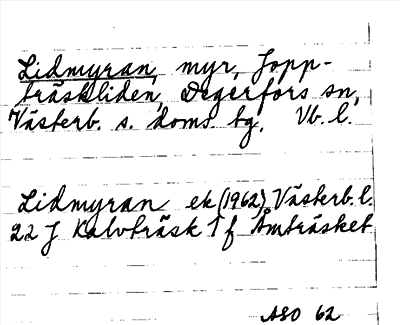 Lidmyran, myr, Jopp-
träskliden, Degerfors sn,
Västerb. s. doms. bg, Vb. l.
Lidmyran ek (1962) Västerb. l.
22 J Kalvträsk 1 f Åmträsket
ASO 62